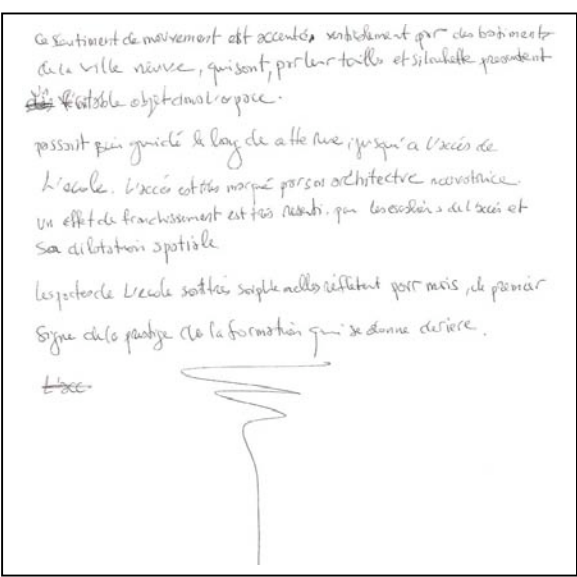 Ce sentiment de mouvement est accentué, par des batiments
de la ville neuve, qui sont, par leur taille et silouhette
véritable objet dans l'espace.
passant puis guidé le long de cette rue, jusqu'a l'accès de
L'école. L'accès est très marqué par son architecture
un effet de franchissement est très resenti, par les escaliers de l'accès et
sa dilatation spatiale
Les portes de L'école sont très reflètent pour mois, le premier
signe de la prestige de la formation qui se donne derière.
L'acc